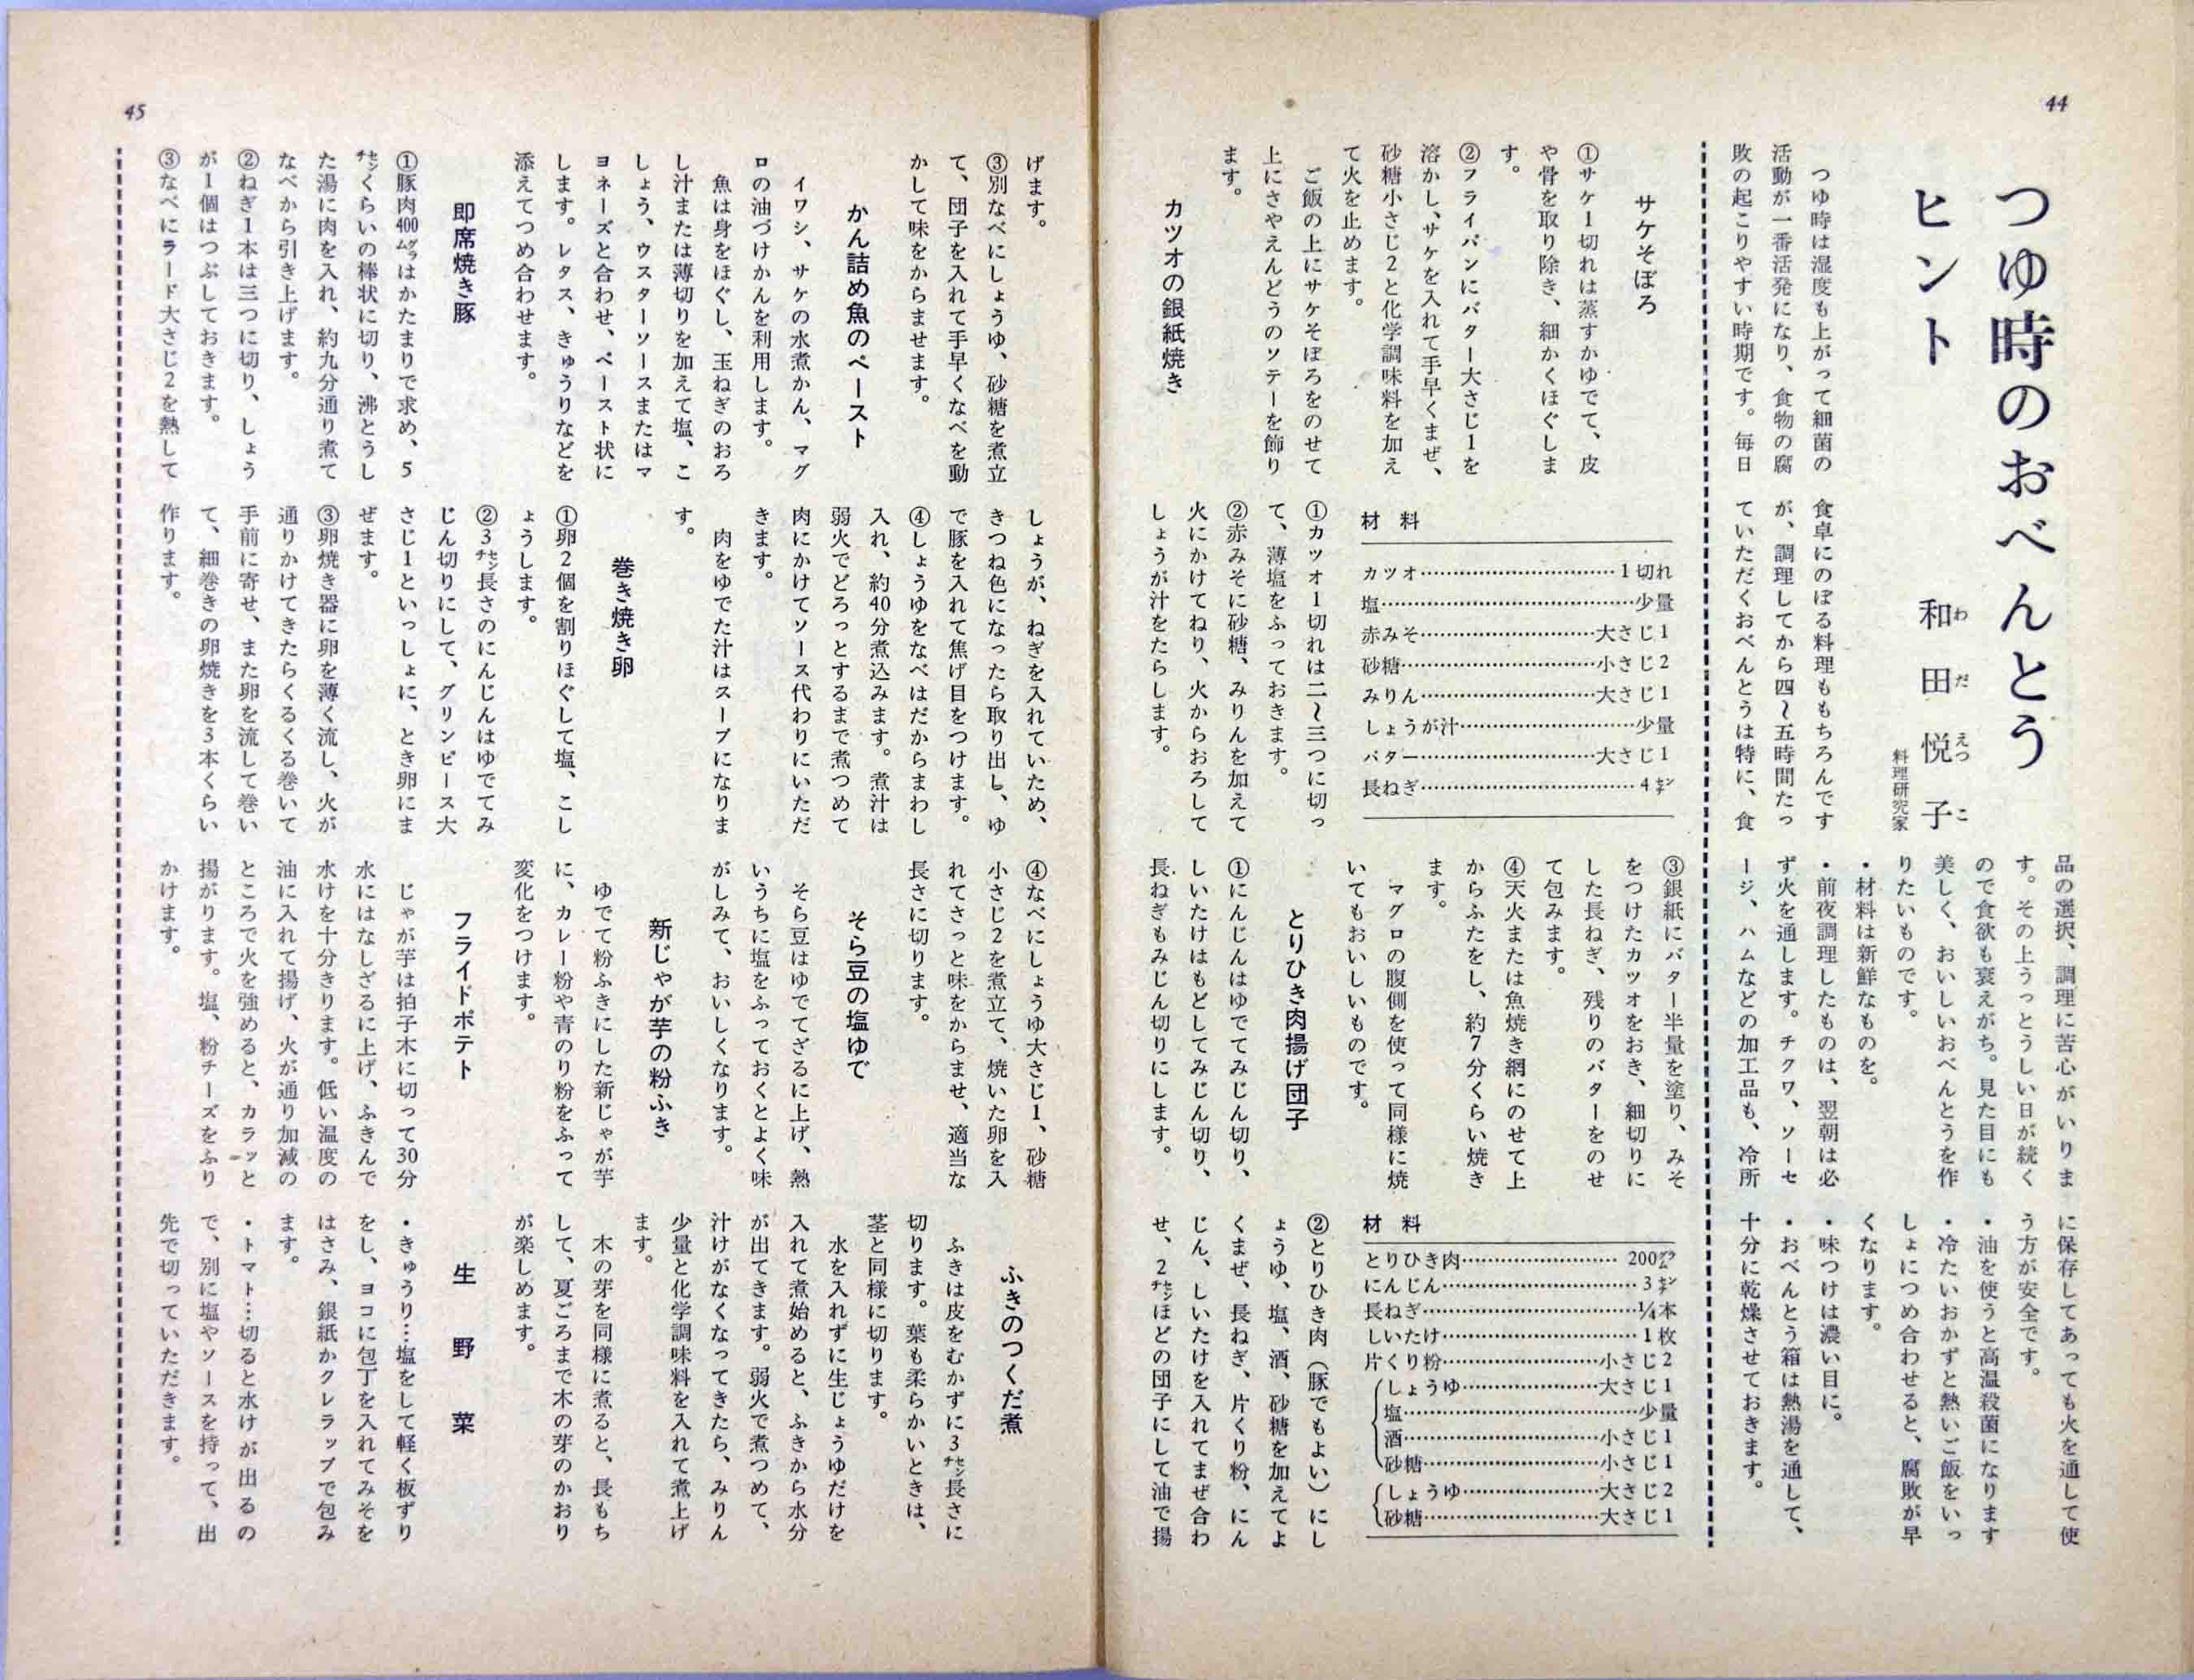 44
つゆ時のおべんとう
ヒント
和田悦子
わだえつこ
料理研究家
つゆ時は湿度も上がって細菌の
活動が一番活発になり、食物の腐
敗の起こりやすい時期です。毎日
食卓にのぼる料理ももちろんです
が、調理してから四〜五時間たっ
ていただくおべんとうは特に、食
品の選択、調理に苦心がいりま
す。その上うっとうしい日が続く
ので食欲も衰えがち。見た目にも
美しく、おいしいおべんとうを作
りたいものです。
・材料は新鮮なものを。
・前夜調理したものは、翌朝は必
ず火を通します。チクワ、ソーセ
ージ、ハムなどの加工品も、冷所
に保存してあっても火を通して使
う方が安全です。
・油を使うと高温殺菌になります
・冷たいおかずと熱いご飯をいっ
しょにつめ合わせると、腐敗が早
くなります。
・味つけは濃い目に。
・おべんとう箱は熱湯を通して、
十分に乾燥させておきます。
サケそぼろ
①サケ1切れは蒸すかゆでて、皮
や骨を取り除き、細かくほぐしま
す。
②フライパンにバター大さじ1を
溶かし、サケを入れて手早くまぜ、
砂糖小さじ2と化学調味料を加え
て火を止めます。
ご飯の上にサケそぼろをのせて
上にさやえんどうのソテーを飾り
ます。
カツオの銀紙焼き
材料
カツオ……1切れ
塩……少量
赤みそ……大さじ1
砂糖……小さじ2
みりん……大さじ1
しょうが汁……少量
バター……大さじ1
長ねぎ……4㌢
①カツオ1切れは二〜三つに切っ
て、薄塩をふっておきます。
②赤みそに砂糖、みりんを加えて
火にかけてねり、火からおろして
しょうが汁をたらします。
③銀紙にバター半量を塗り、みそ
をつけたカツオをおき、細切りに
した長ねぎ、残りのバターをのせ
て包みます。
④天火または魚焼き網にのせて上
からふたをし、約7分くらい焼き
ます。
マグロの腹側を使って同様に焼
いてもおいしいものです。
とりひき肉揚げ団子
①にんじんはゆでてみじん切り、
しいたけはもどしてみじん切り、
長ねぎもみじん切りにします。
材料
とりひき肉……200㌘
にんじん……3㌢
長ねぎ……¼本
しいたけ……1枚
片くり粉……小さじ2
しょうゆ……大さじ1
塩……少量
酒……小さじ1
砂糖……小さじ1
しょうゆ……大さじ2
砂糖……大さじ1
②とりひき肉(豚でもよい)にし
ょうゆ、塩、酒、砂糖を加えてよ
くまぜ、長ねぎ、片くり粉、にん
じん、しいたけを入れてまぜ合わ
せ、2㌢ほどの団子にして油で揚
45
げます。
③別なべにしょうゆ、砂糖を煮立
て、団子を入れて手早くなべを動
かして味をからませます。
かん詰め魚のペースト
イワシ、サケの水煮かん、マグ
ロの油づけかんを利用します。
魚は身をほぐし、玉ねぎのおろ
し汁または薄切りを加えて塩、こ
しょう、ウスターソースまたはマ
ヨネーズと合わせ、ペースト状に
します。レタス、きゅうりなどを
添えてつめ合わせます。
即席焼き豚
①豚肉400㌘はかたまりで求め、5
㌢くらいの棒状に切り、沸とうし
た湯に肉を入れ、約九分通り煮て
なべから引き上げます。
②ねぎ1本は三つに切り、しょう
が1個はつぶしておきます。
③なべにラード大さじ2を熱して
しょうが、ねぎを入れていため、
きつね色になったら取り出し、ゆ
で豚を入れて焦げ目をつけます。
④しょうゆをなべはだからまわし
入れ、約40分煮込みます。煮汁は
弱火でどろっとするまで煮つめて
肉にかけてソース代わりにいただ
きます。
肉をゆでた汁はスープになりま
す。
巻き焼き卵
①卵2個を割りほぐして塩、こし
ょうします。
②3㌢長さのにんじんはゆでてみ
じん切りにして、グリンピース大
さじ1といっしょに、とき卵にま
ぜます。
③卵焼き器に卵を薄く流し、火が
通りかけてきたらくるくる巻いて
手前に寄せ、また卵を流して巻い
て、細巻きの卵焼きを3本くらい
作ります。
④なべにしょうゆ大さじ1、砂糖
小さじ2を煮立て、焼いた卵を入
れてさっと味をからませ、適当な
長さに切ります。
そら豆の塩ゆで
そら豆はゆでてざるに上げ、熱
いうちに塩をふっておくとよく味
がしみて、おいしくなります。
新じゃが芋の粉ふき
ゆでて粉ふきにした新じゃが芋
に、カレー粉や青のり粉をふって
変化をつけます。
フライドポテト
じゃが芋は拍子木に切って30分
水にはなしざるに上げ、ふきんで
水けを十分きります。低い温度の
油に入れて揚げ、火が通り加減の
ところで火を強めると、カラッと
揚がります。塩、粉チーズをふり
かけます。
ふきのつくだ煮
ふきは皮をむかずに3㌢長さに
切ります。葉も柔らかいときは、
茎と同様に切ります。
水を入れずに生じょうゆだけを
入れて煮始めると、ふきから水分
が出てきます。弱火で煮つめて、
汁けがなくなってきたら、みりん
少量と化学調味料を入れて煮上げ
ます。
木の芽を同様に煮ると、長もち
して、夏ごろまで木の芽のかおり
が楽しめます。
生野菜
・きゅうり…塩をして軽く板ずり
をし、ヨコに包丁を入れてみそを
はさみ、銀紙かクレラップで包み
ます。
・トマト…切ると水けが出るの
で、別に塩やソースを持って、出
先で切っていただきます。